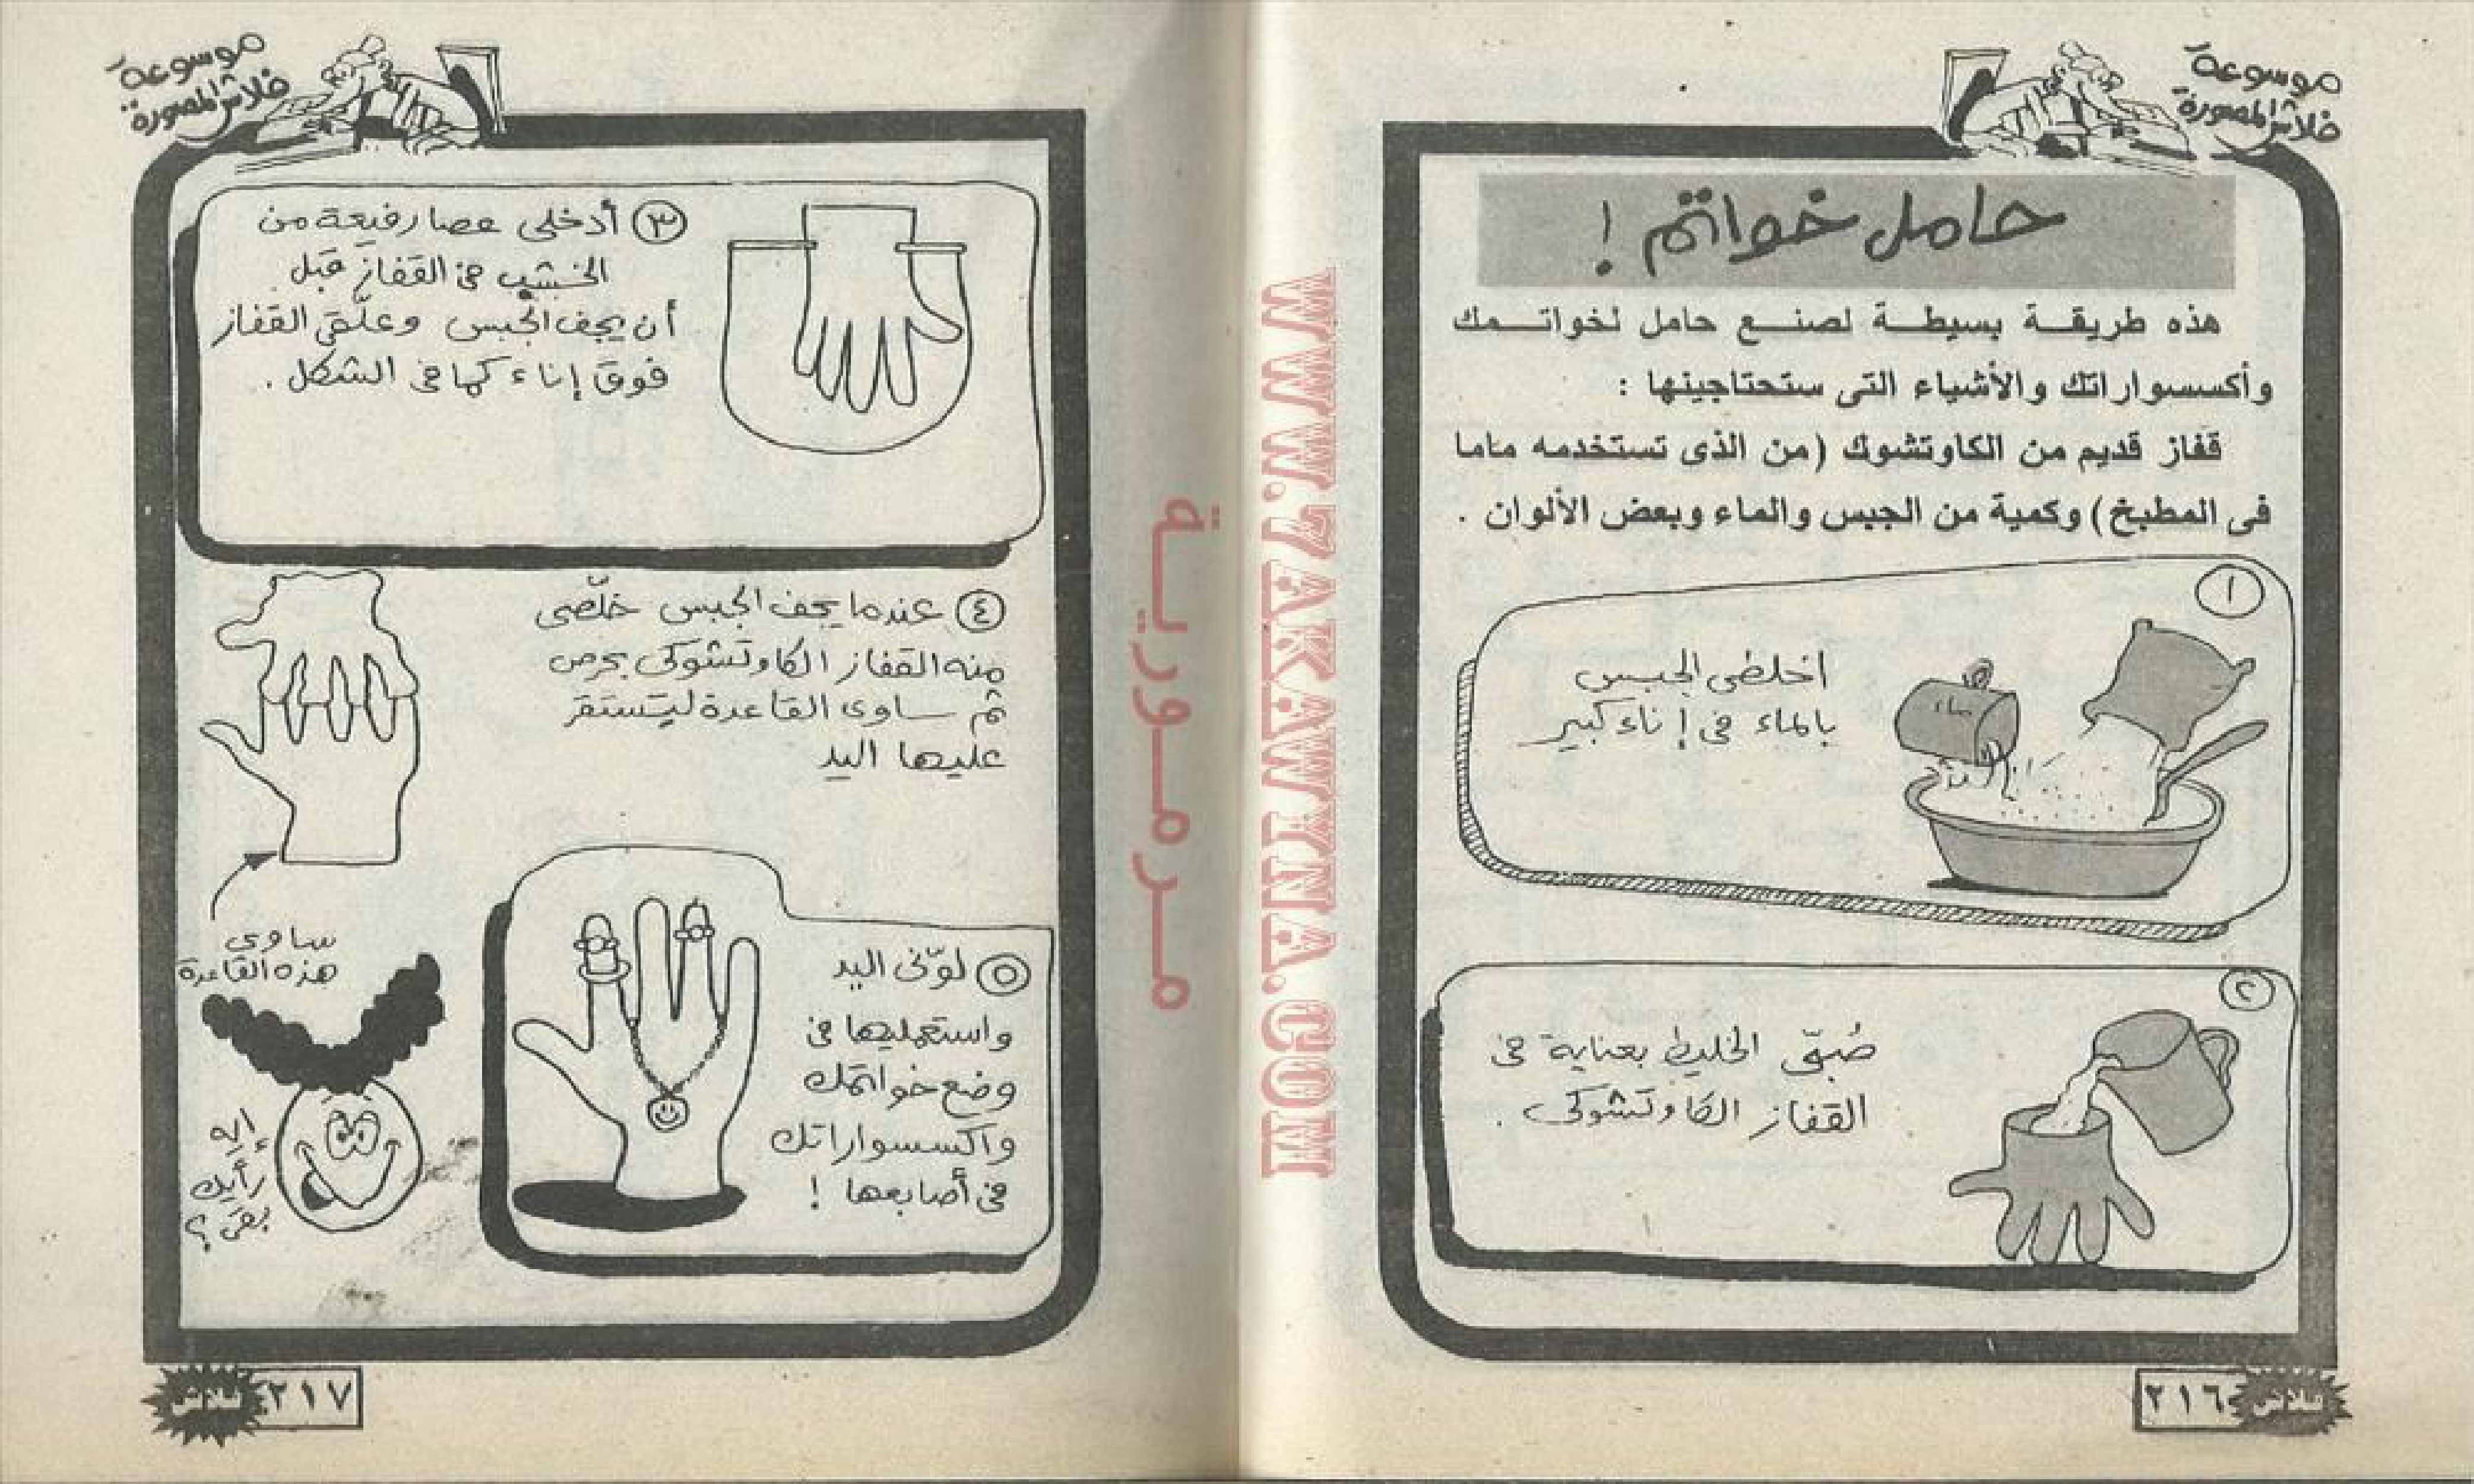 موسوعة
فلاش المصورة
حامل خواتم !
هذه طريقة بسيطة لصنع حامل لخواتمك
وأكسسواراتك والأشياء التى ستحتاجينها :
قفاز قديم من الكاوتشوك (من الذى تستخدمه ماما
فى المطبخ) وكمية من الجبس والماء وبعض الألوان .
١
اخلطى الجبس
بالماء فى إناء كبير
ماء
٢
صُبّى الخليط بعناية فى
القفاز الكاوتشوكى .
٢١٦ فلاش
WWW.ZAKAWANA.COM
مرمورية
موسوعة
فلاش المصورة
٣ أدخلى عصا رفيعة من
الخشب فى القفاز قبل
أن يجف الجبس وعلّقى القفاز
فوق إناء كما فى الشكل .
٤ عندما يجف الجبس خلّصى
منه القفاز الكاوتشوكى بحرص
ثم ساوى القاعدة لتستقر
عليها اليد
ساوى
هذه القاعدة
٥ لوّنى اليد
واستعمليها فى
وضع خواتمك
واكسسواراتك
فى أصابعها !
إيه
رأيك
بقى ؟
٢١٧ فلاش